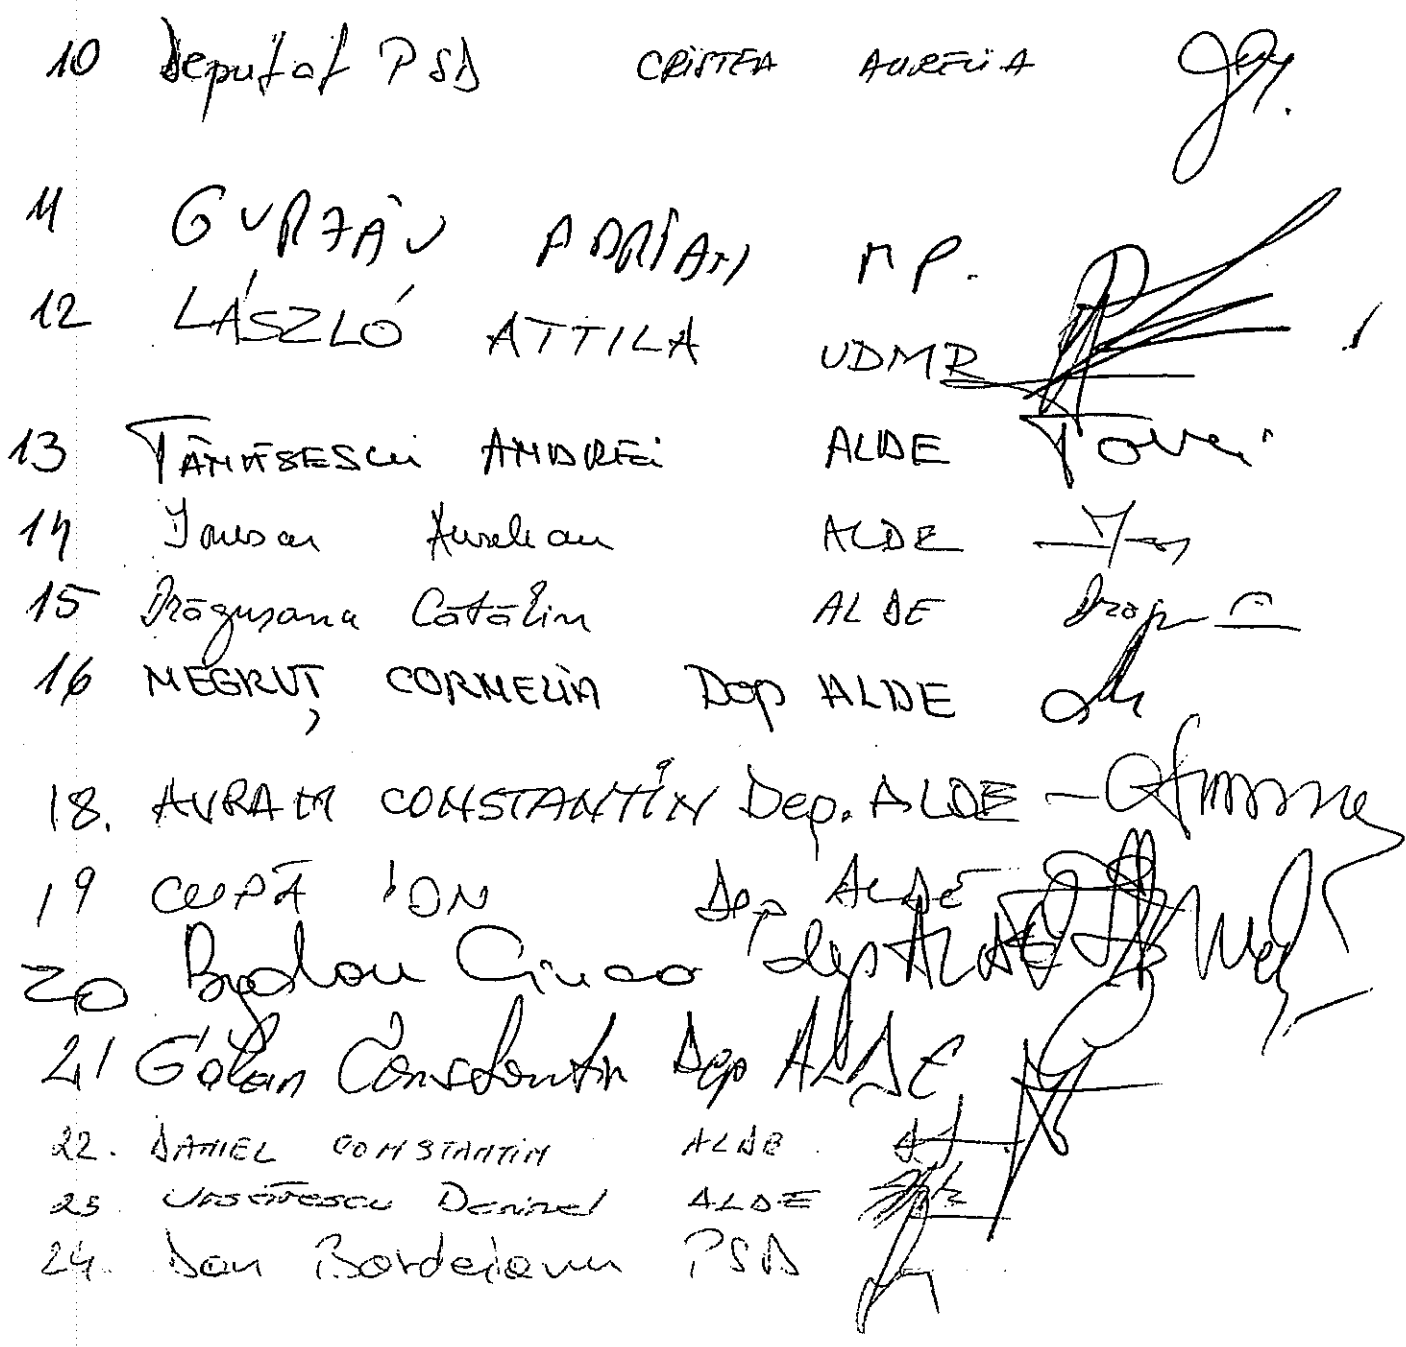 10 Deputat PSD CRISTEA AURELIA
11 GURZĂU ADRIAN MP.
12 LÁSZLÓ ATTILA UDMR
13 TĂNĂSESCU ANDREI ALDE
14 Ionescu Aurelian ALDE
15 Drăgușanu Cătălin ALDE
16 NEGRUȚ CORNELIA Dep ALDE
18. AVRAM CONSTANTIN Dep. ALDE
19 CUPĂ ION Dep ALDE
20 Bogdan Ciucă dep ALDE
21 Galan Constantin Dep ALDE
22. DANIEL CONSTANTIN ALDE
23 ALDE
24. Dan Bordeianu PSD